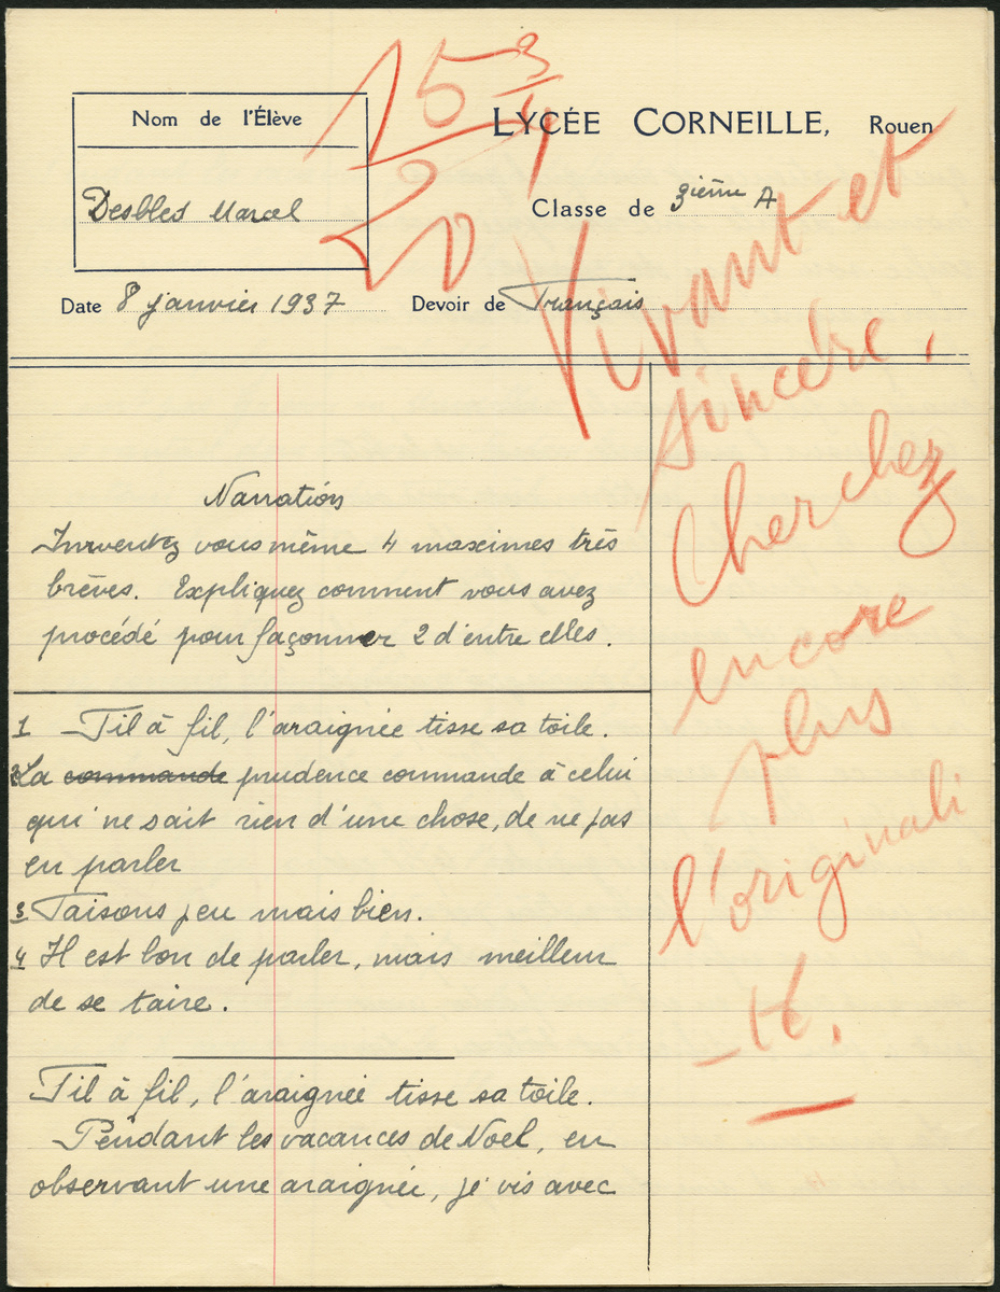 Nom de l'Élève
Desbled Marcel
LYCÉE CORNEILLE, Rouen
Classe de 3ième A
Date 8 janvier 1937
Devoir de Français
15 3/4
20
Vivant et
sincère.
Cherchez
encore
plus
l'originali
-té.
Narration
Inventez vous même 4 maximes très
brèves. Expliquez comment vous avez
procédé pour façonner 2 d'entre elles.
1 Fil à fil, l'araignée tisse sa toile.
2 La commande prudence commande à celui
qui ne sait rien d'une chose, de ne pas
en parler
3 Taisons peu mais bien.
4 Il est bon de parler, mais meilleur
de se taire.
Fil à fil, l'araignée tisse sa toile.
Pendant les vacances de Noel, en
observant une araignée, je vis avec